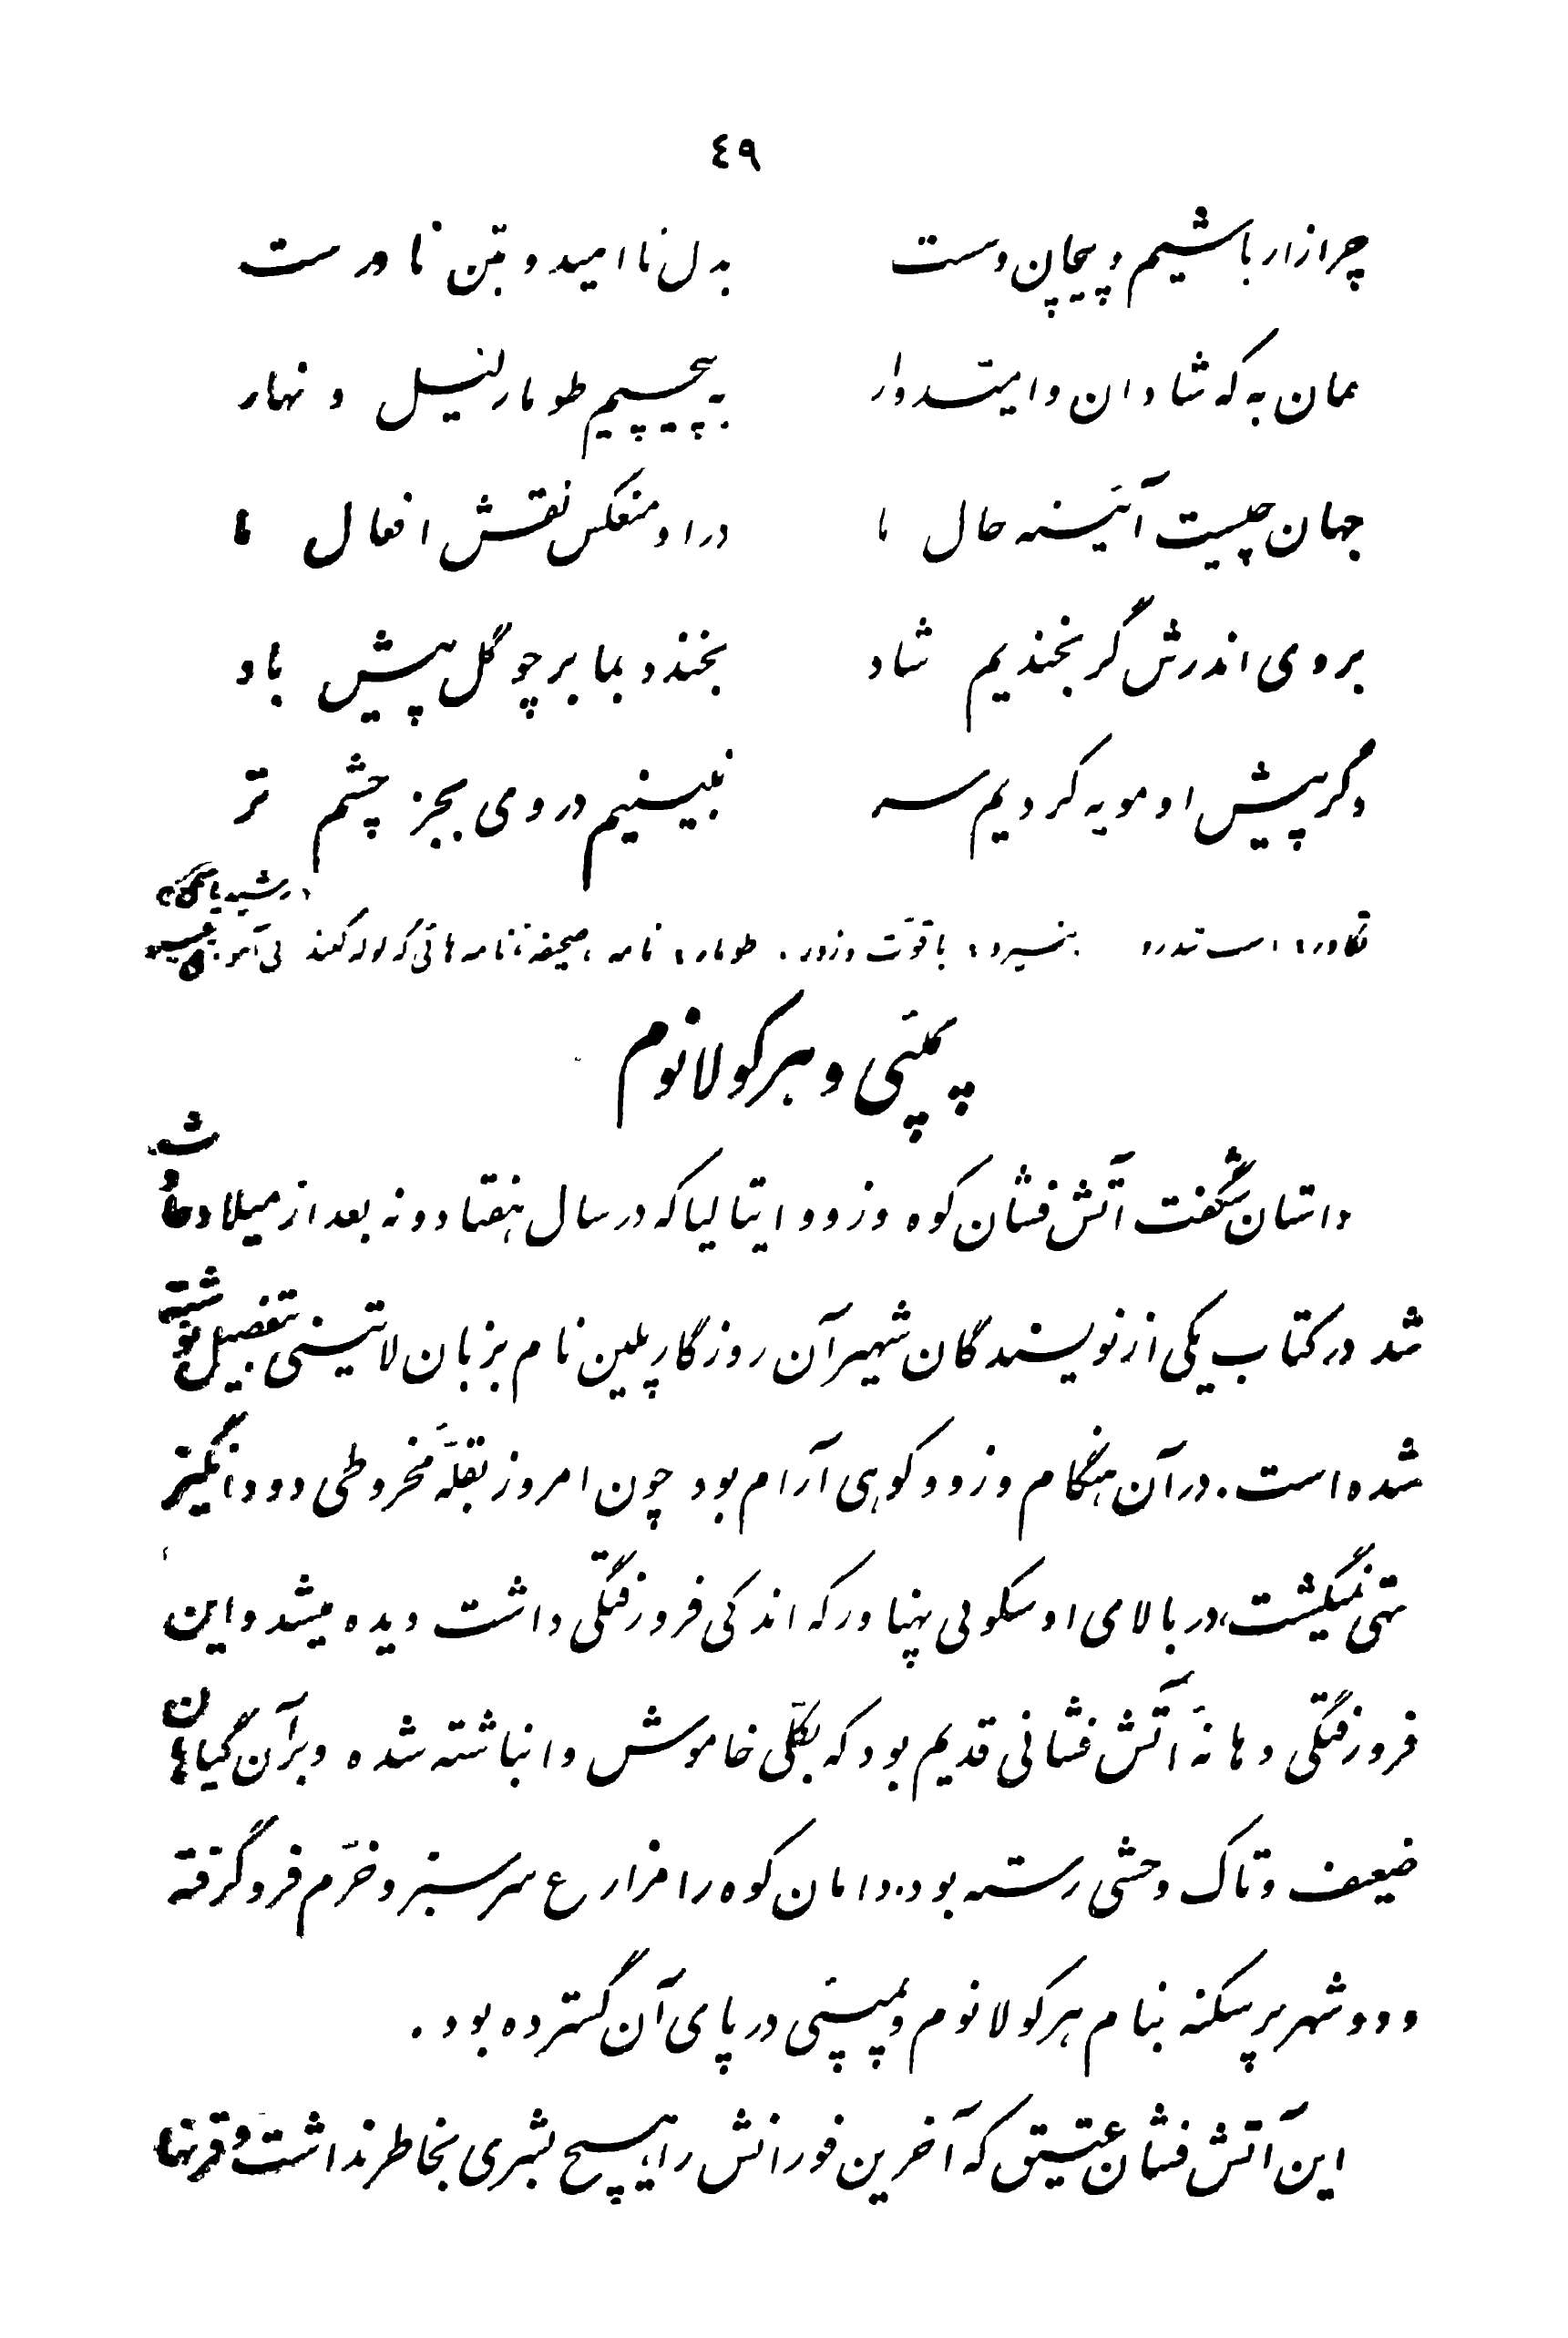 ٤٩
چرا زار باشیم و پیچان و سست بدل ناامید و بتن نادرست
همان به که شادان و امیدوار بپیچیم طومار لیل و نهار
جهان چیست آئینه حال ما در او منعکس نقش افعال ما
بروی اندرش گر بخندیم شاد بخندد بما بر چو گل پیش باد
وگر پیش او مویه کردیم سر نبینیم در وی بجز چشم تر
رشید یاسمی
تکاور: اسب تندرو . نیرو: با قوّت و زور . طومار: نامه ، صحیفه، نامه هائی که لوله کنند
پمپئی و هرکولانوم
داستان شگفت آتش فشان کوه وزوو ایتالیا که در سال هفتاد و نه بعد از میلاد حادث
شد در کتاب یکی از نویسندگان شهیر آن روزگار پلین نام بزبان لاتینی بتفصیل نوشته
شده است . در آن هنگام وزوو کوهی آرام بود چون امروز بقلّهٔ مخروطی دود انگیز
منتهی نمیگشت، در بالای او سکوئی پهناور که اندکی فرورفتگی داشت دیده میشد و این
فرورفتگی دهانهٔ آتش فشانی قدیم بود که بکلّی خاموش و انباشته شده و بر آن گیاهان
ضعیف و تاک وحشی رسته بود. دامان کوه را مزارع سرسبز و خرّم فرو گرفته
و دو شهر پرسکنه بنام هرکولانوم و پمپئی در پای آن گسترده بود .
این آتش فشان عتیق که آخرین فورانش را هیچ بشری بخاطر نداشت و قرنها